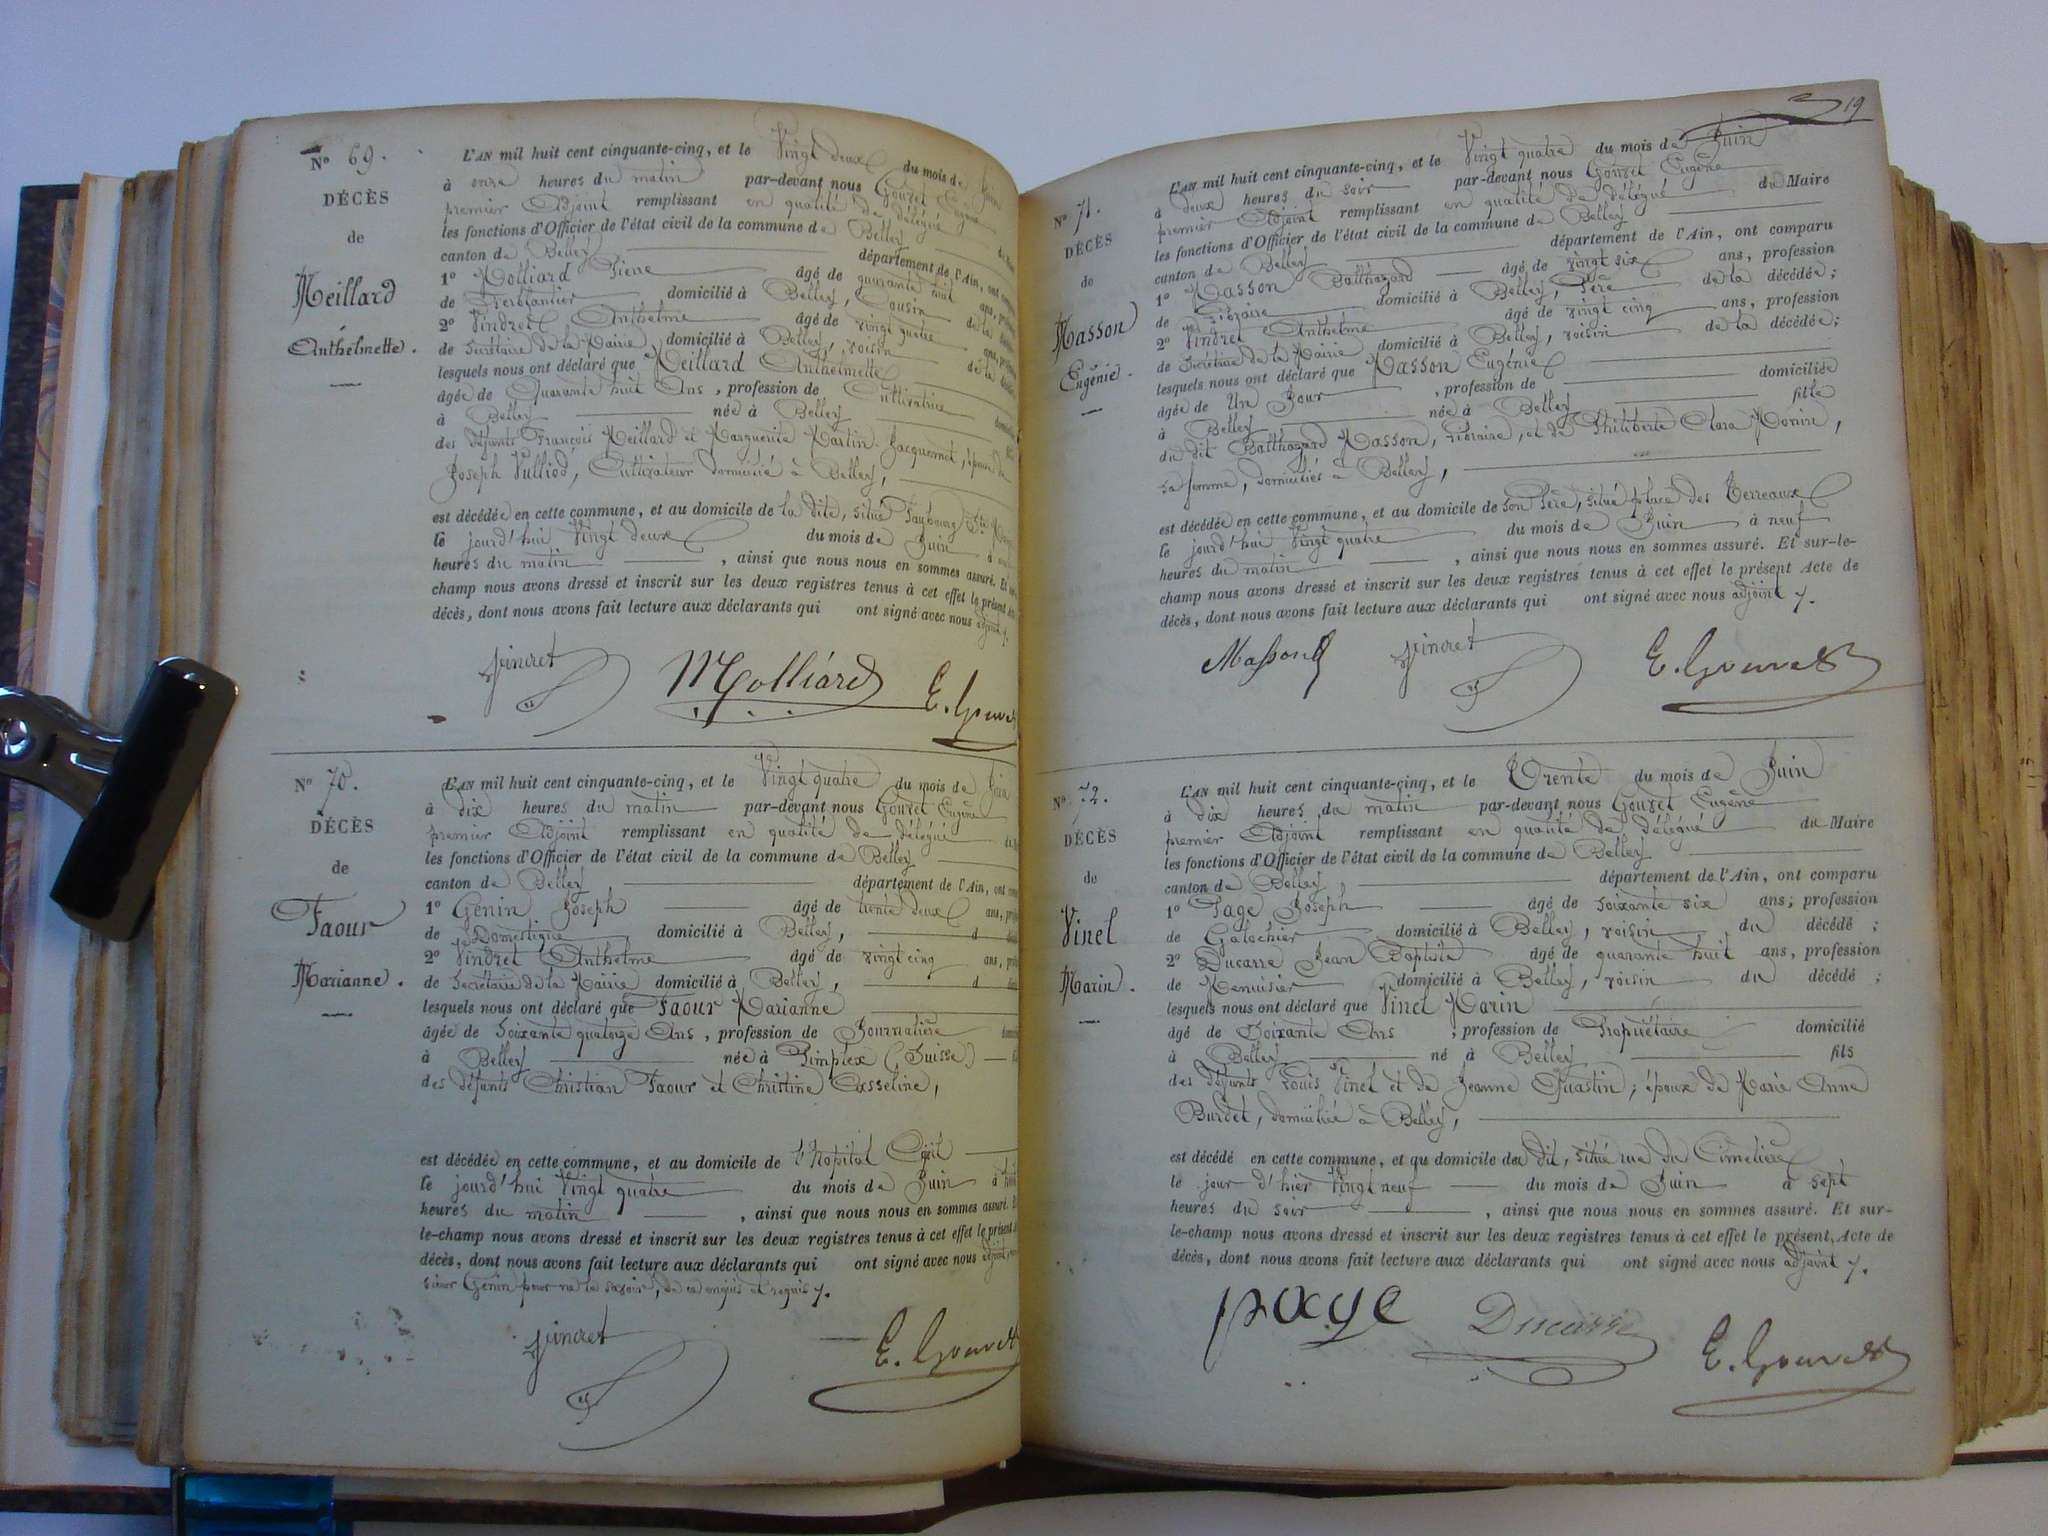 Nº 69.
DÉCÈS
de
Meillard
Anthelmette.
L'AN mil huit cent cinquante-cinq, et le Vingt deux du mois de Juin
à onze heures du matin par-devant nous Gouvet Eugène
premier Adjoint remplissant en qualité de délégué
les fonctions d'Officier de l'état civil de la commune de Belley
canton de Belley département de l'Ain, ont
1º Molliard Pierre âgé de quarante huit ans,
de Ferblantier, domicilié à Belley, Cousin de la
2º Vindret Anthelme âgé de vingt quatre ans,
de Secrétaire de la Mairie domicilié à Belley, voisin de la
lesquels nous ont déclaré que Meillard Anthelmette
âgée de Quarante huit Ans, profession de Cultivatrice
à Belley née à Belley
des défunts François Meillard et Marguerite Martin-Jacquemet, épouse de
Joseph Vulliod, Cultivateur domicilié à Belley,
est décédée en cette commune, et au domicile de la dite, situé Faubourg
le jourd'hui Vingt deux du mois de Juin à
heures du matin, ainsi que nous nous en sommes assuré. Et
champ nous avons dressé et inscrit sur les deux registres tenus à cet effet le présent
décès, dont nous avons fait lecture aux déclarants qui ont signé avec nous adjoint ./.
Vindret Molliard E. Gouvet
Nº 70.
DÉCÈS
de
Faour
Marianne.
L'AN mil huit cent cinquante-cinq, et le Vingt quatre du mois de Juin
à dix heures du matin par-devant nous Gouvet Eugène
premier Adjoint remplissant en qualité de délégué
les fonctions d'Officier de l'état civil de la commune de Belley
canton de Belley département de l'Ain, ont
1º Génin Joseph âgé de trente deux ans,
de Domestique domicilié à Belley, d
2º Vindret Anthelme âgé de vingt cinq ans,
de Secrétaire de la Mairie domicilié à Belley, d
lesquels nous ont déclaré que Faour Marianne
âgée de Soixante quatorze Ans, profession de Journalière
à Belley née à Simplex (Suisse)
des défunts Christian Faour et Christine Casseline,
est décédée en cette commune, et au domicile de l'hopital Civil
le jourd'hui Vingt quatre du mois de Juin à
heures du matin, ainsi que nous nous en sommes assuré.
le-champ nous avons dressé et inscrit sur les deux registres tenus à cet effet le présent
décès, dont nous avons fait lecture aux déclarants qui ont signé avec nous adjoint,
sieur Génin pour ne le savoir, de ce enquis et requis ./.
Vindret E. Gouvet
19
Nº 71.
DÉCÈS
de
Masson
Eugénie.
L'AN mil huit cent cinquante-cinq, et le Vingt quatre du mois de Juin
à deux heures du soir par-devant nous Gouvet Eugène
premier Adjoint remplissant en qualité de délégué du Maire
les fonctions d'Officier de l'état civil de la commune de Belley
canton de Belley département de l'Ain, ont comparu
1º Masson Balthazard âgé de vingt six ans, profession
de Libraire domicilié à Belley, Père de la décédée;
2º Vindret Anthelme âgé de vingt cinq ans, profession
de Secrétaire de la Mairie domicilié à Belley, voisin de la décédée;
lesquels nous ont déclaré que Masson Eugénie
âgée de Un Jour, profession de domiciliée
à Belley née à Belley fille
du dit Balthazard Masson, Libraire, et de Philiberte Clara Monin,
sa femme, domiciliés à Belley,
est décédée en cette commune, et au domicile de son Père, situé place des Terreaux
le jourd'hui Vingt quatre du mois de Juin à neuf
heures du matin, ainsi que nous nous en sommes assuré. Et sur-le-
champ nous avons dressé et inscrit sur les deux registres tenus à cet effet le présent Acte de
décès, dont nous avons fait lecture aux déclarants qui ont signé avec nous adjoint ./.
Masson Vindret E. Gouvet
Nº 72.
DÉCÈS
de
Vinel
Marin.
L'AN mil huit cent cinquante-cinq, et le Trente du mois de Juin
à dix heures du matin par-devant nous Gouvet Eugène
premier Adjoint remplissant en qualité de délégué du Maire
les fonctions d'Officier de l'état civil de la commune de Belley
canton de Belley département de l'Ain, ont comparu
1º Page Joseph âgé de soixante six ans; profession
de Galochier domicilié à Belley, voisin du décédé;
2º Ducarre Jean Baptiste âgé de quarante huit ans, profession
de Menuisier domicilié à Belley, voisin du décédé;
lesquels nous ont déclaré que Vinel Marin
âgé de Soixante Ans, profession de Propriétaire domicilié
à Belley né à Belley fils
des défunts Louis Vinel et de Jeanne Quastin; époux de Marie Anne
Burdet, domiciliée à Belley,
est décédé en cette commune, et au domicile du dit, situé rue du Cimetière
le jour d'hier Vingt neuf du mois de Juin à sept
heures du soir, ainsi que nous nous en sommes assuré. Et sur-
le-champ nous avons dressé et inscrit sur les deux registres tenus à cet effet le présent Acte de
décès, dont nous avons fait lecture aux déclarants qui ont signé avec nous adjoint ./.
page Ducarre E. Gouvet